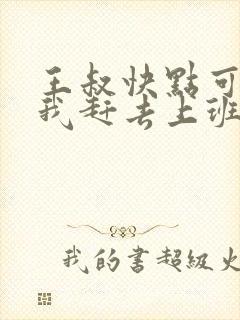 王叔快點可
我赶去上班
我的書超級火